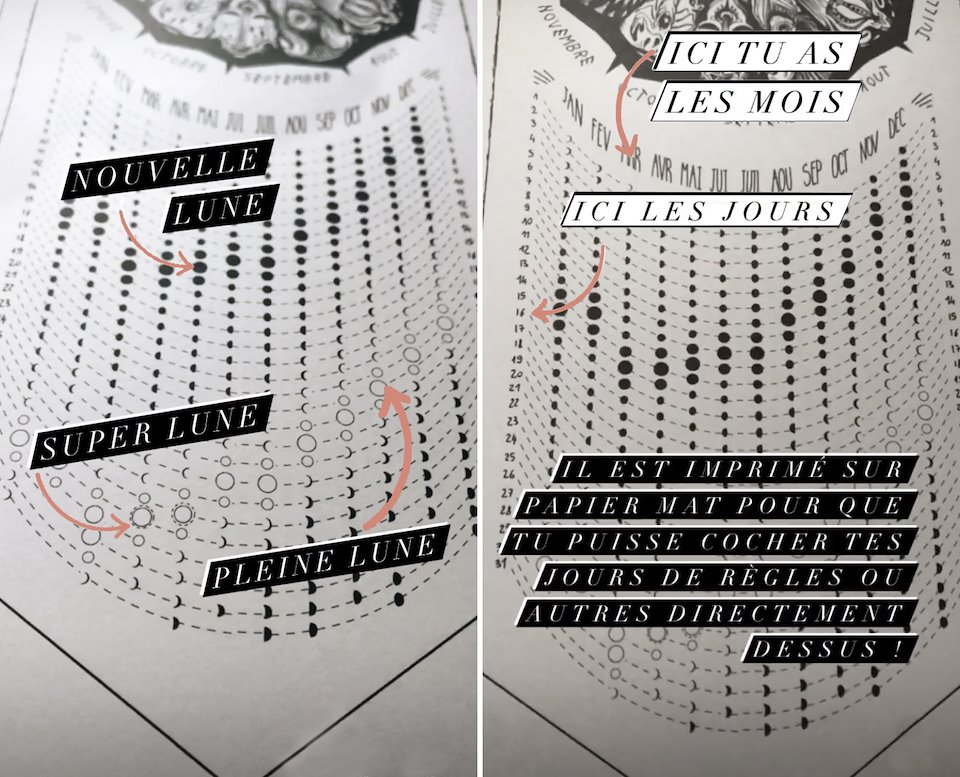 OCTOBRE
SEPTEMBRE
AOUT
JAN FEV MAR AVR MAI JUI JUIL AOU SEP OCT NOV DEC
NOUVELLE
LUNE
SUPER LUNE
PLEINE LUNE
NOVEMBRE
AOUT
ICI TU AS
LES MOIS
JAN FEV MAR AVR MAI JUI JUIL AOU SEP OCT NOV DEC
ICI LES JOURS
1
2
3
4
5
6
14
15
16
17
18
19
20
21
22
23
24
25
26
27
28
31
IL EST IMPRIMÉ SUR
PAPIER MAT POUR QUE
TU PUISSE COCHER TES
JOURS DE RÈGLES OU
AUTRES DIRECTEMENT
DESSUS !